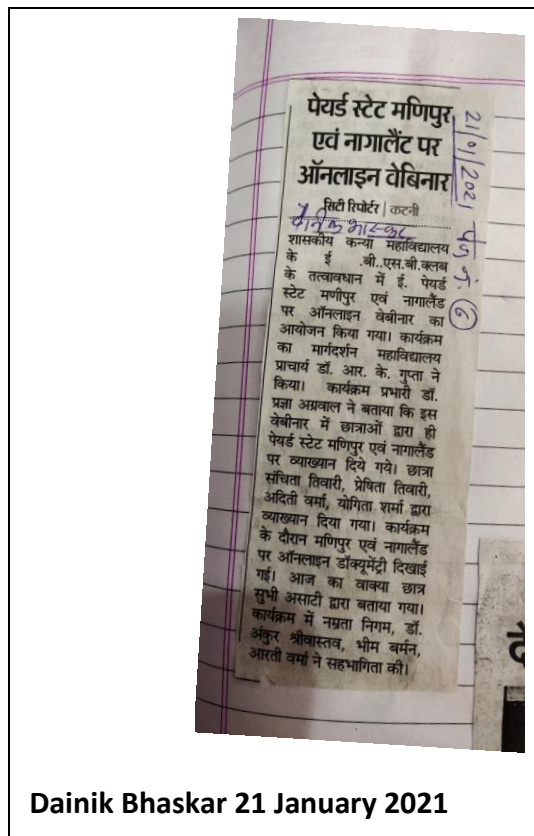 पेयर्ड स्टेट मणिपुर
एवं नागालैंट पर
ऑनलाइन वेबिनार
सिटी रिपोर्टर | कटनी
दैनिक भास्कर
शासकीय कन्या महाविद्यालय
के ई .बी..एस.बी.क्लब
के तत्वावधान में ई. पेयर्ड
स्टेट मणीपुर एवं नागालैंड
पर ऑनलाइन वेबीनार का
आयोजन किया गया। कार्यक्रम
का मार्गदर्शन महाविद्यालय
प्राचार्य डॉ. आर. के. गुप्ता ने
किया। कार्यक्रम प्रभारी डॉ.
प्रज्ञा अग्रवाल ने बताया कि इस
वेबीनार में छात्राओं द्वारा ही
पेयर्ड स्टेट मणिपुर एवं नागालैंड
पर व्याख्यान दिये गये। छात्रा
संचिता तिवारी, प्रेषिता तिवारी,
अदिती वर्मा, योगिता शर्मा द्वारा
व्याख्यान दिया गया। कार्यक्रम
के दौरान मणिपुर एवं नागालैंड
पर ऑनलाइन डॉक्यूमेंट्री दिखाई
गई। आज का वाक्या छात्र
सुभी असाटी द्वारा बताया गया।
कार्यक्रम में नम्रता निगम, डॉ.
अंकुर श्रीवास्तव, भीम बर्मन,
आरती वर्मा ने सहभागिता की।
21/01/2021 पेज नं. 6
Dainik Bhaskar 21 January 2021